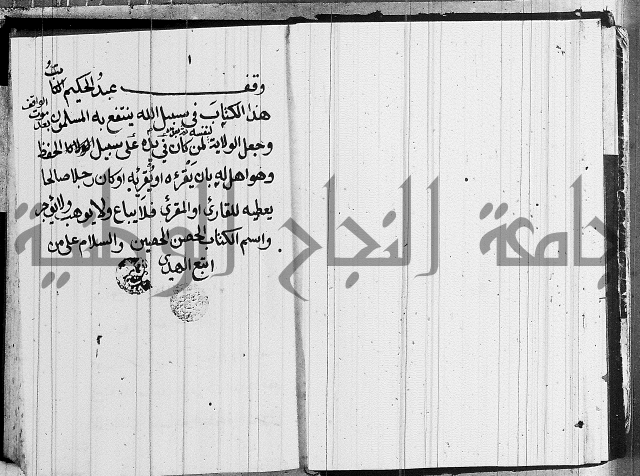 ١
وقف عبد الحكيم
هذا الكتاب في سبيل الله ينتفع به المسلمون بعد موت الواقف
وجعل الولاية لنفسه ثم من بعده لمن كان في يده على سبيل الحفظ
وهو اهل له بان يقرءه او يُقرِئه او كان رجلا صالحا
يعطيه للقارئ او المقرئ فلا يباع ولا يوهب ولا يوجر
واسم الكتاب الحصن الحصين والسلام على من
اتبع الهدى
جامعة النجاح الوطنية